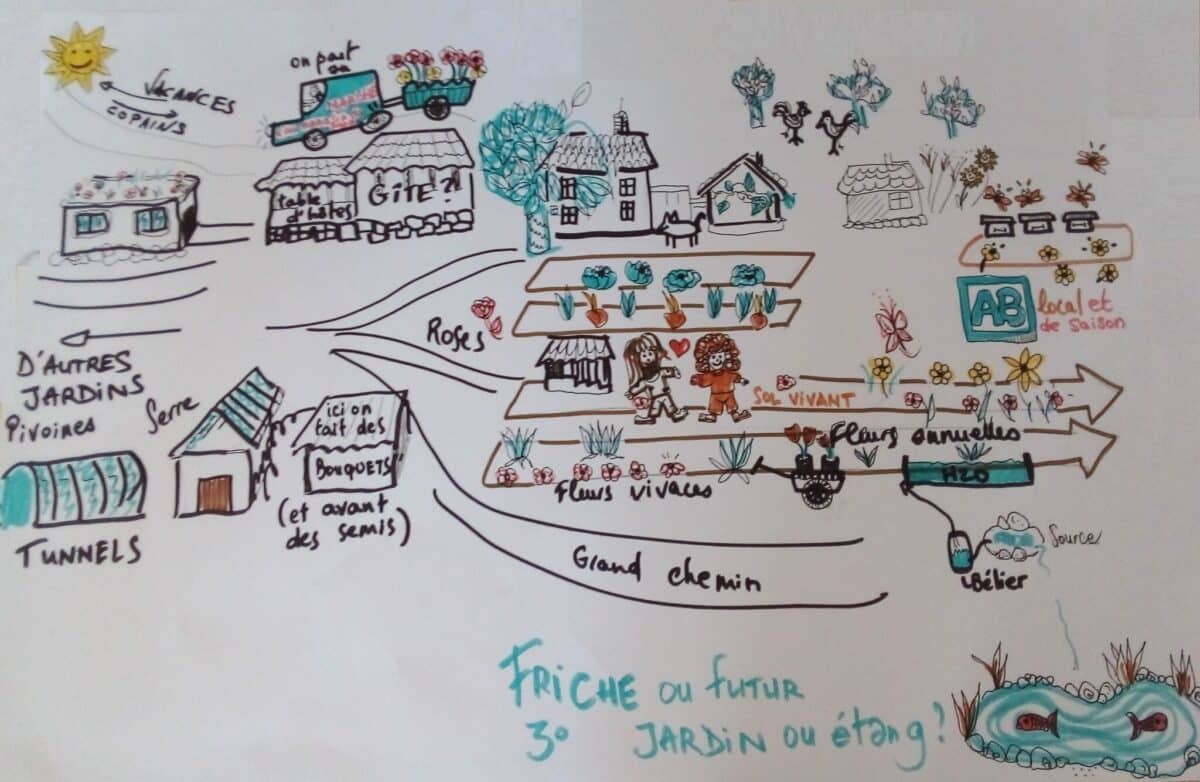 VACANCES
COPAINS
on part
au
MARCHÉ
table
d'hôtes
GÎTE ?
D'AUTRES
JARDINS
Pivoines
TUNNELS
Serre
ici on
fait des
BOUQUETS
(et avant
des semis)
Roses
SOL VIVANT
Fleurs annuelles
Fleurs vivaces
AB
local et
de saison
H2O
Source
Bélier
Grand chemin
FRICHE ou futur
3° JARDIN ou étang ?